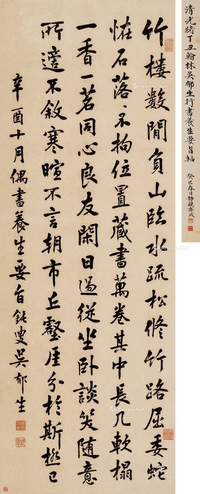 竹樓數間負山臨水疏松脩竹路屈委蛇
怪石落落不拘位置藏書萬卷其中長几軟榻
一香一茗同心良友閑日過從坐卧談笑隨意
所適不敘寒暄不言朝市丘壑涯分於斯極已
辛酉十月偶書養生要旨鈍叟吳郁生
清光緒丁丑翰林吳郁生行書養生要旨軸